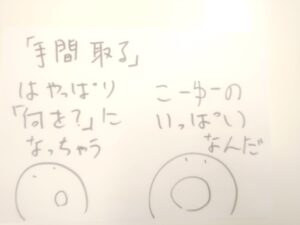 「手間 取る」
はやっぱり
「何を?」に
なっちゃう
こーゆーの
いっぱい
なんだ